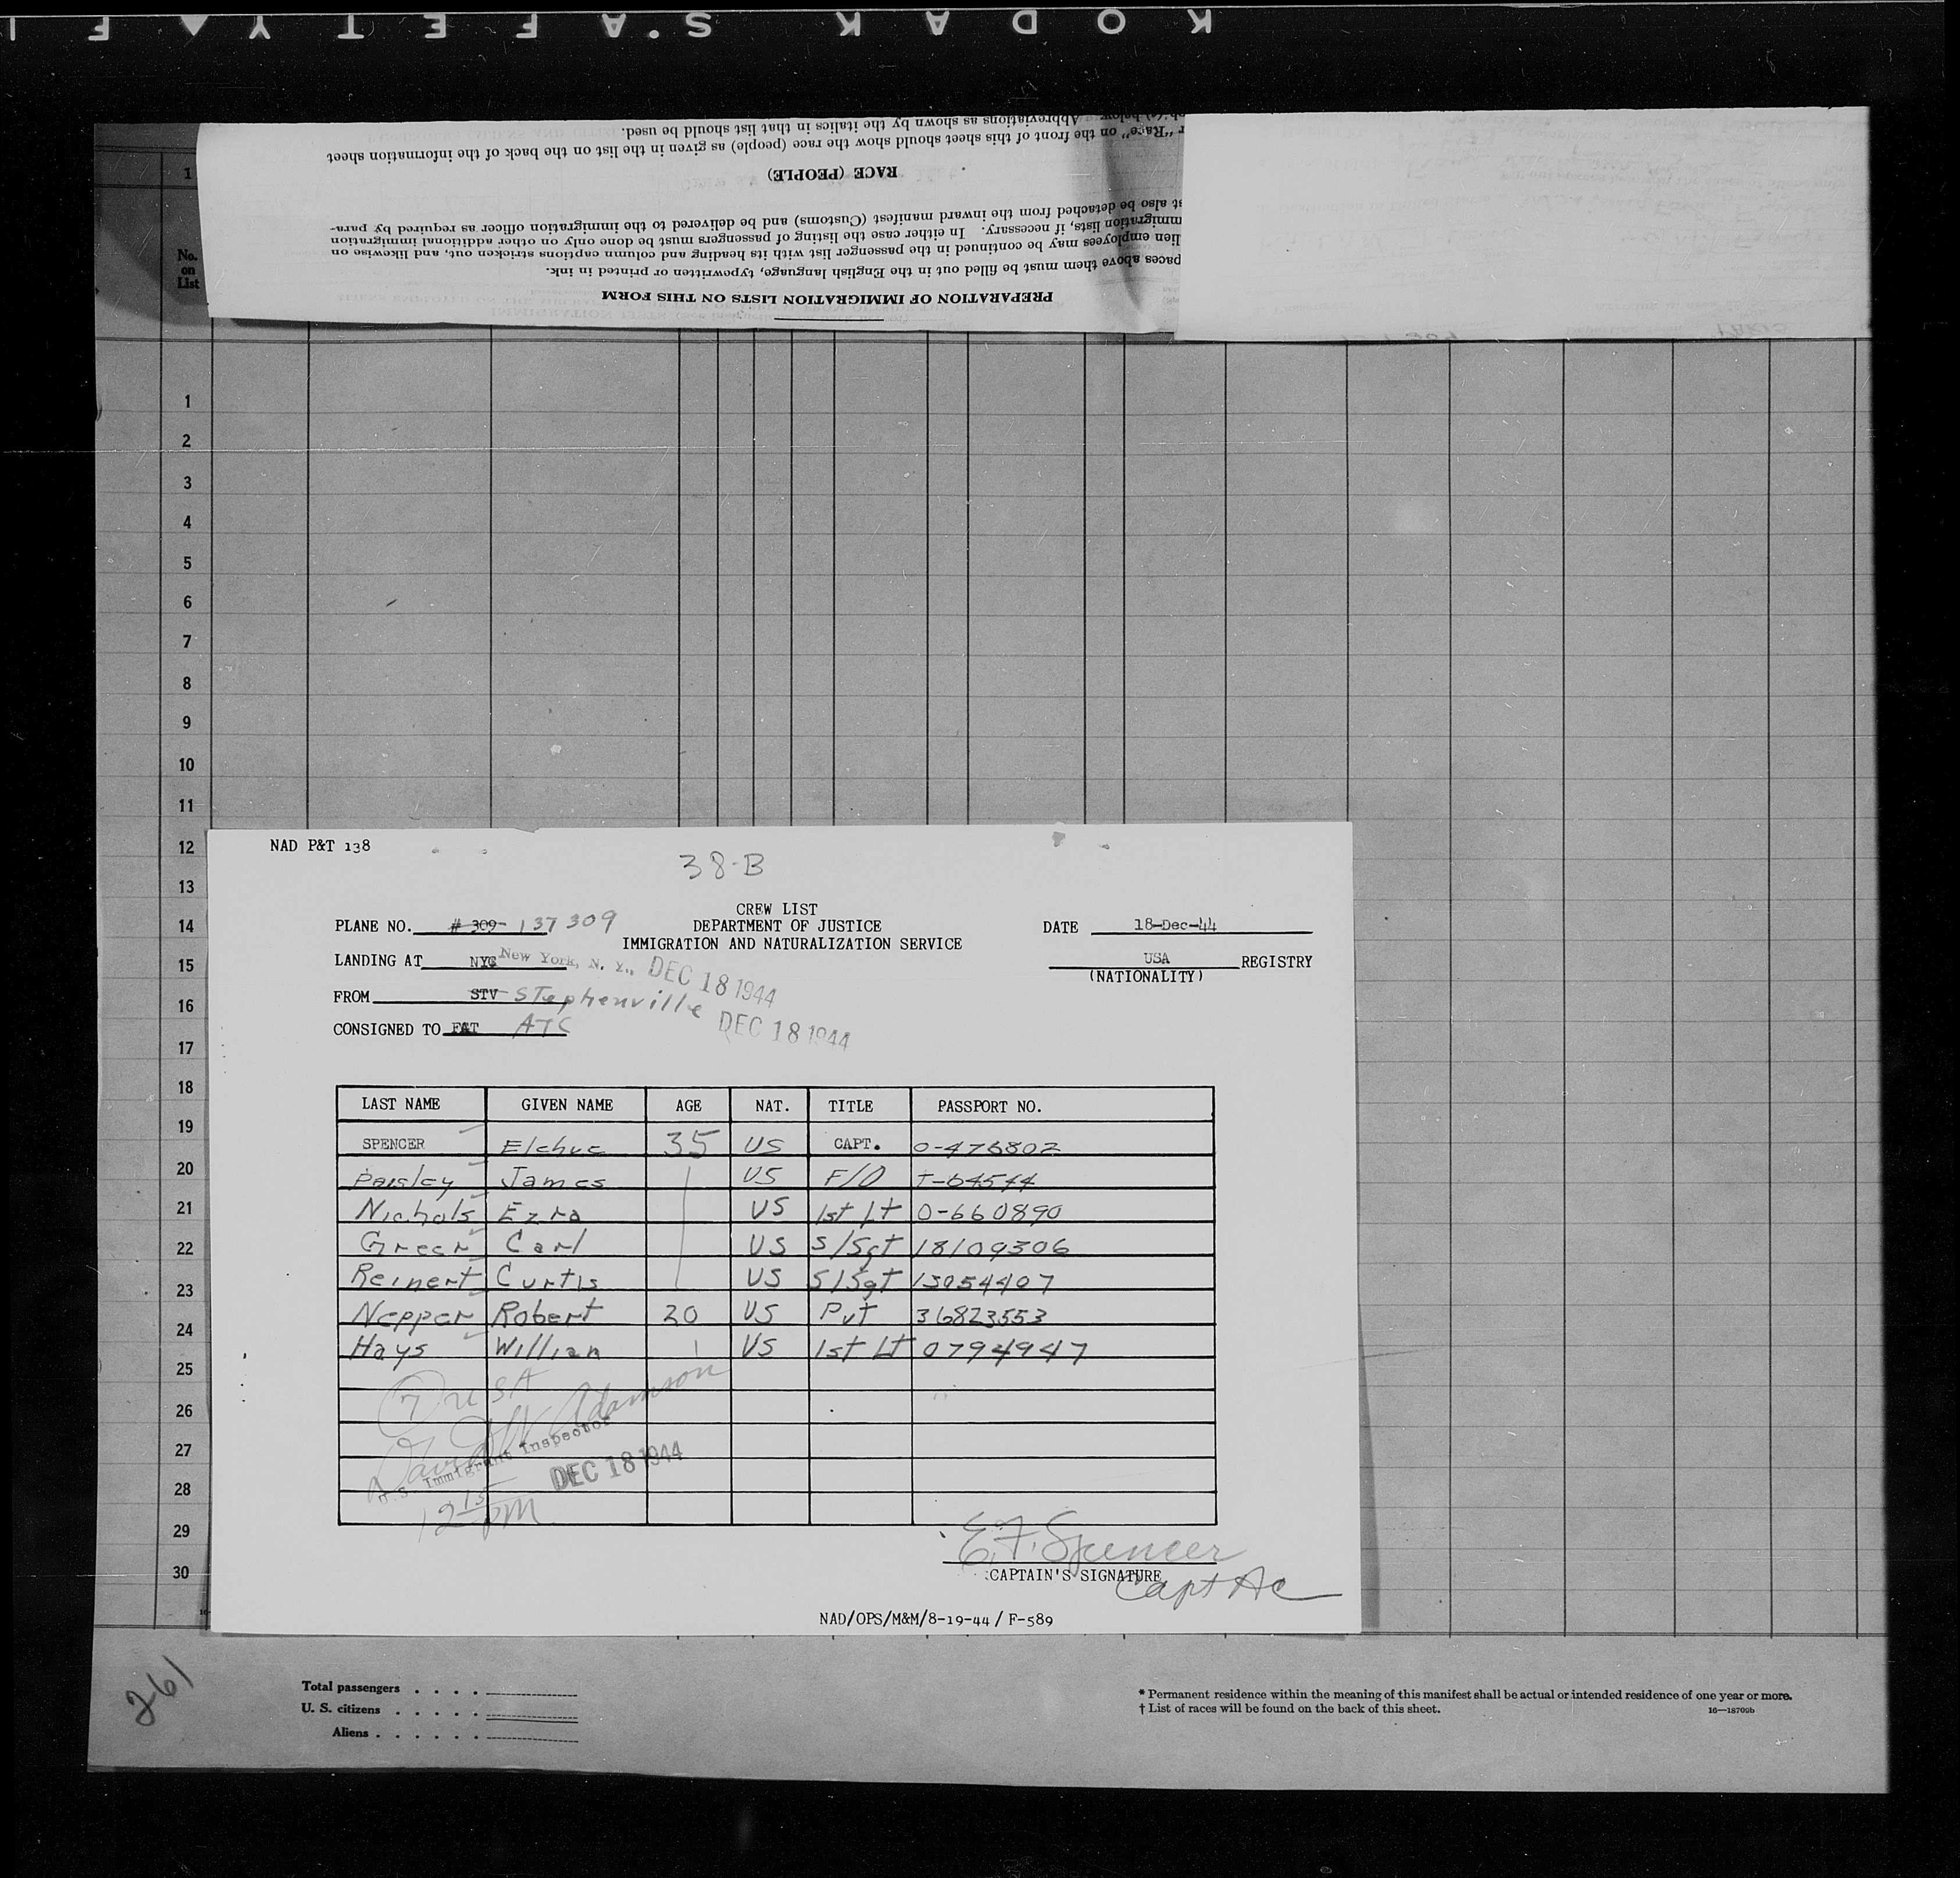 KODAK S.AFETY F
"Race" on the front of this sheet should show the race (people) as given in the list on the back of the information sheet
below. Abbreviations as shown by the italics in that list should be used.
RACE (PEOPLE)
also be detached from the inward manifest (Customs) and be delivered to the immigration officer as required by para-
immigration lists, if necessary. In either case the listing of passengers must be done only on other additional immigration
lien employees may be continued in the passenger list with its heading and column captions stricken out, and likewise on
paces above them must be filled out in the English language, typewritten or printed in ink.
PREPARATION OF IMMIGRATION LISTS ON THIS FORM
1
No.
on
List
1
2
3
4
5
6
7
8
9
10
11
12
13
14
15
16
17
18
19
20
21
22
23
24
25
26
27
28
29
30
NAD P&T 138
38-B
CREW LIST
PLANE NO. # 309- 137309 DEPARTMENT OF JUSTICE DATE 18-Dec-44
IMMIGRATION AND NATURALIZATION SERVICE
LANDING AT NYC New York, N. Y., DEC 18 1944 USA REGISTRY
(NATIONALITY)
FROM STV Stephenville
CONSIGNED TO ATC DEC 18 1944
LAST NAME GIVEN NAME AGE NAT. TITLE PASSPORT NO.
SPENCER 35 US CAPT. 0-476802
Paisley James US F/O T-64544
Nichols Ezra US 1st Lt 0-660890
Green Carl US S/Sgt 18109306
Reinert Curtis US S/Sgt 13054407
Nepper Robert 20 US Pvt 36823553
Hays William US 1st Lt 0794947
7 USA
David Adamson
U.S. Immigrant Inspector
DEC 18 1944
12 15 PM
E.F. Spencer
CAPTAIN'S SIGNATURE
Capt AC
NAD/OPS/M&M/8-19-44 / F-589
261
Total passengers . . . .
U. S. citizens . . . . .
Aliens . . . . . .
* Permanent residence within the meaning of this manifest shall be actual or intended residence of one year or more.
† List of races will be found on the back of this sheet.
16—18709b